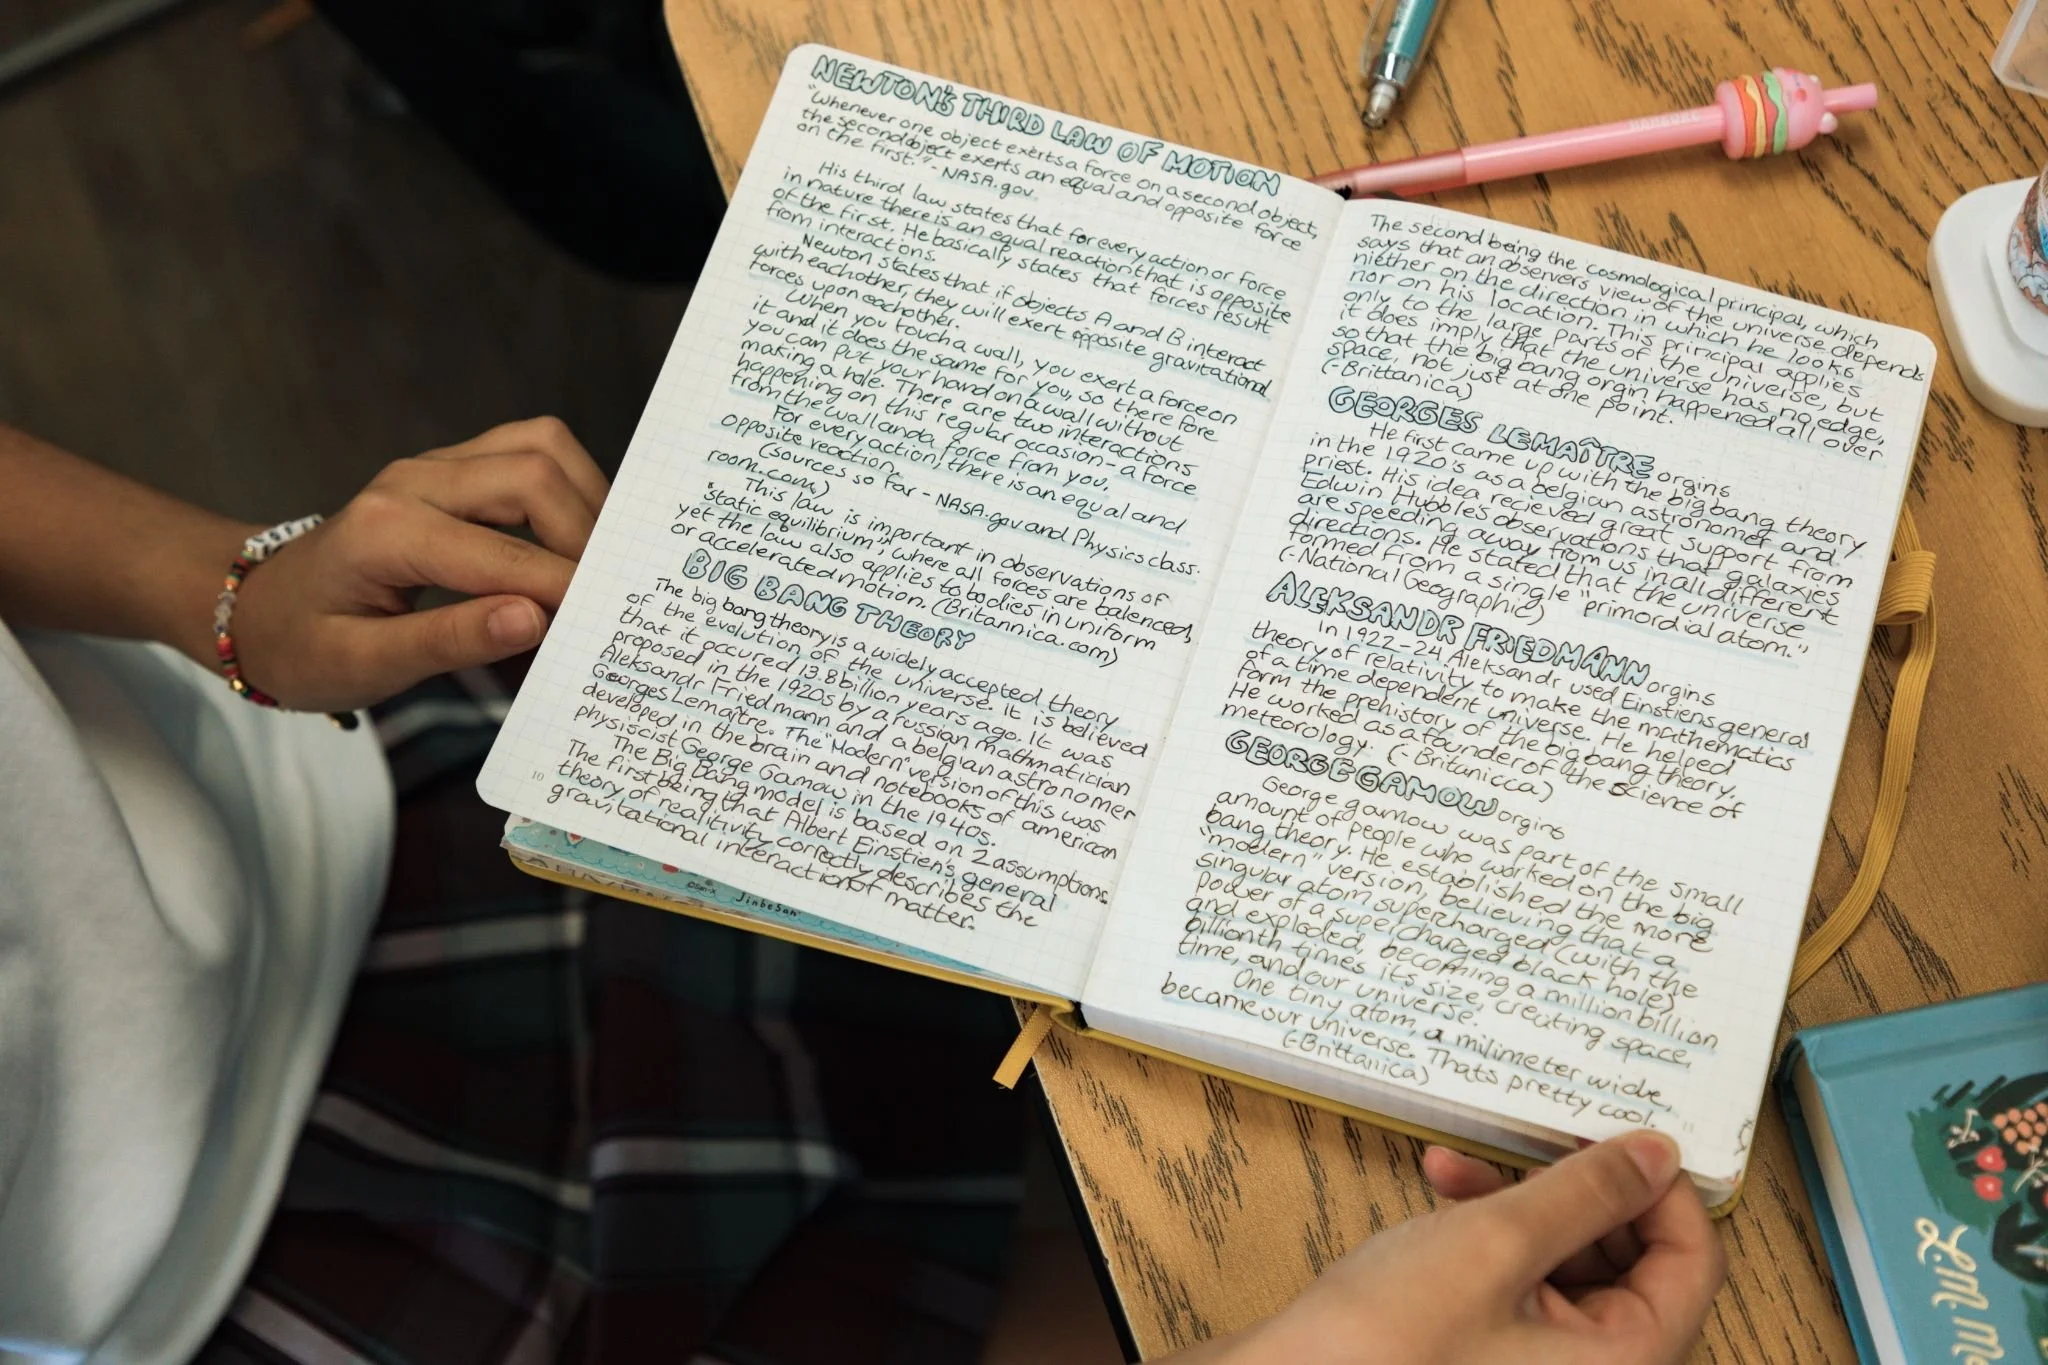 NEWTON'S THIRD LAW OF MOTION
"Whenever one object exerts a force on a second object,
the second object exerts an equal and opposite force
on the first." - NASA.gov
His third law states that for every action or force
in nature there is an equal reaction that is opposite
of the first. He basically states that forces result
from interactions.
Newton states that if objects A and B interact
with eachother, they will exert opposite gravitational
forces upon eachother.
When you touch a wall, you exert a force on
it and it does the same for you, so there fore
you can put your hand on a wall without
making a hole. There are two interactions
happening on this regular occasion - a force
from the wall and a force from you.
For every action, there is an equal and
opposite reaction.
(sources so far - NASA.gov and Physics class.
room.com)
This law is important in observations of
"static equilibrium", where all forces are balenced,
yet the law also applies to bodies in uniform
or accelerated motion. (Britannica.com)
BIG BANG THEORY
The big bang theory is a widely accepted theory
of the evolution of the universe. It is believed
that it occured 13.8 billion years ago. It was
proposed in the 1920s by a russian mathmatician
Aleksandr Friedmann and a belgian astronomer
Georges Lemaître. The "Modern" version of this was
developed in the brain and notebooks of american
physiscist George Gamow in the 1940s.
The Big Bang model is based on 2 assumptions.
The first being that Albert Einstien's general
theory of realitivity correctly describes the
gravitational interaction of matter.
10
Jinbesan
The second being the cosmological principal, which
says that an observers view of the universe depends
niether on the direction in which he looks
nor on his location. This principal applies
only to the large parts of the universe, but
it does imply that the universe has no edge,
so that the big bang orgin happened all over
space, not just at one point.
(-Brittanica)
GEORGES LEMAÎTRE orgins
He first came up with the big bang theory
in the 1920's as a belgian astronomer and
priest. His idea recieved great support from
Edwin Hubbles observations that galaxies
are speeding away from us in all different
directions. He stated that the universe
formed from a single "primordial atom."
(-National Geographic)
ALEKSANDR FRIEDMANN orgins
In 1922-24 Aleksandr used Einstiens general
theory of relativity to make the mathematics
of a time dependent universe. He helped
form the prehistory of the big bang theory.
He worked as a founder of the science of
meteorology. (-Britanicca)
GEORGE GAMOW orgins
George gamow was part of the small
amount of people who worked on the big
bang theory. He established the more
"modern" version, believing that a
singular atom supercharged (with the
power of a supercharged black hole)
and exploded, becoming a million billion
billionth times its size, creating space,
time, and our universe.
One tiny atom, a milimeter wide,
became our universe. Thats pretty cool.
(-Brittanica)
11